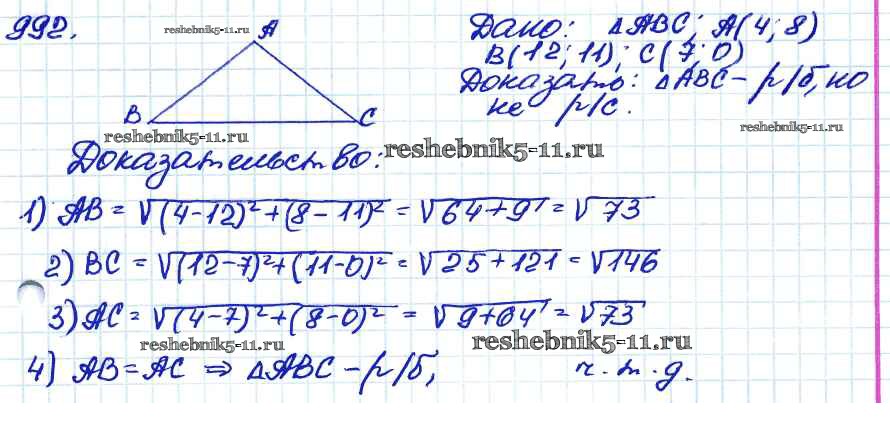 992.
reshebnik5-11.ru
A
B
C
reshebnik5-11.ru
Дано: △ABC; A(4; 8)
B(12; 11); C(7; 0)
Доказать: △ABC – р/б, но
не р/с.
reshebnik5-11.ru
Доказательство:
reshebnik5-11.ru
1) AB = √(4-12)²+(8-11)² = √64+9 = √73
2) BC = √(12-7)²+(11-0)² = √25+121 = √146
3) AC = √(4-7)²+(8-0)² = √9+64 = √73
reshebnik5-11.ru
reshebnik5-11.ru
4) AB = AC ⇒ △ABC – р/б, ч.т.д.